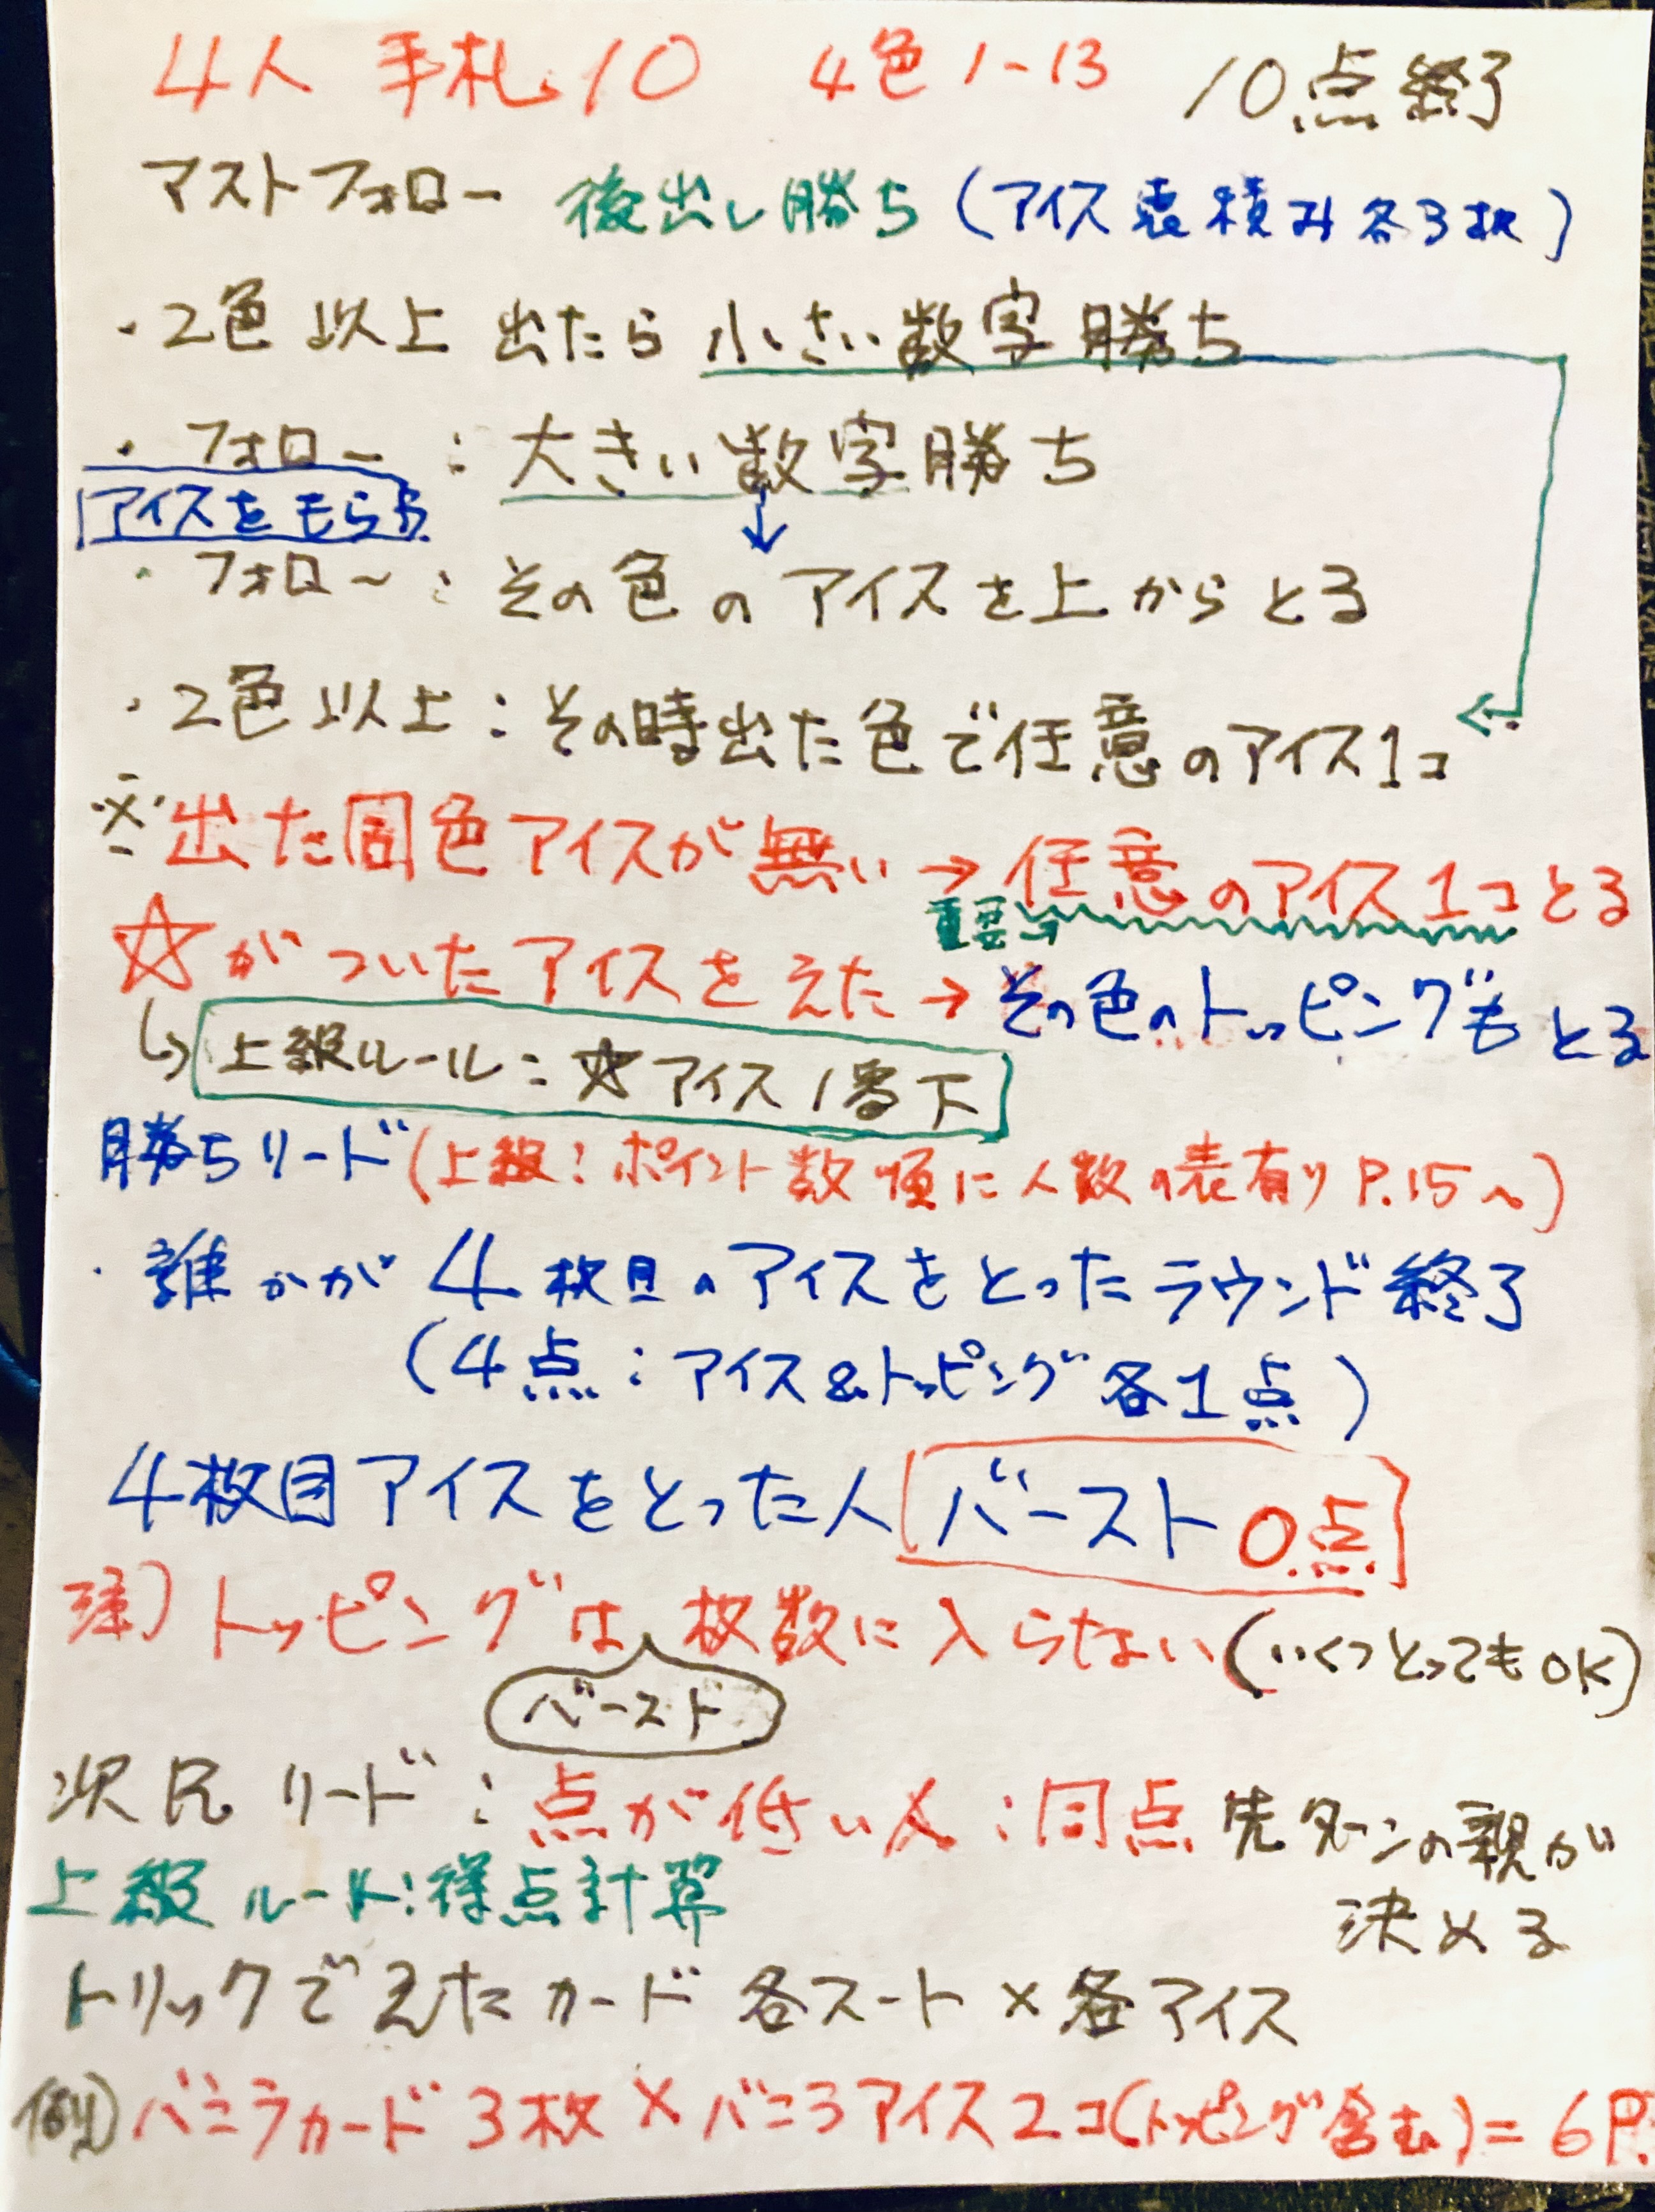 4人 手札10 4色 1-13 10点終了
マストフォロー 後出し勝ち (アイス表積み各3枚)
・2色以上出たら小さい数字勝ち
・フォロー：大きい数字勝ち
アイスをもらう
・フォロー：その色のアイスを上からとる
・2色以上：その時出た色で任意のアイス1コ
※出た同色アイスが無い→任意のアイス1コとる
重要
☆がついたアイスをえた→その色のトッピングもとる
上級ルール：☆アイス1番下
勝ちリード(上級：ポイント数順に人数の表有り P.15へ)
・誰かが4枚目のアイスをとったラウンド終了
(4点：アイス&トッピング各1点)
4枚目アイスをとった人 バースト0点
トッピングは枚数に入らない(いくつとってもOK)
バースト
次 リード：点が低い人：同点 先ターンの親が
決める
上級ルール：得点計算
トリックでえたカード各スート×各アイス
例)バニラカード3枚×バニラアイス2コ(トッピング含む)=6P.